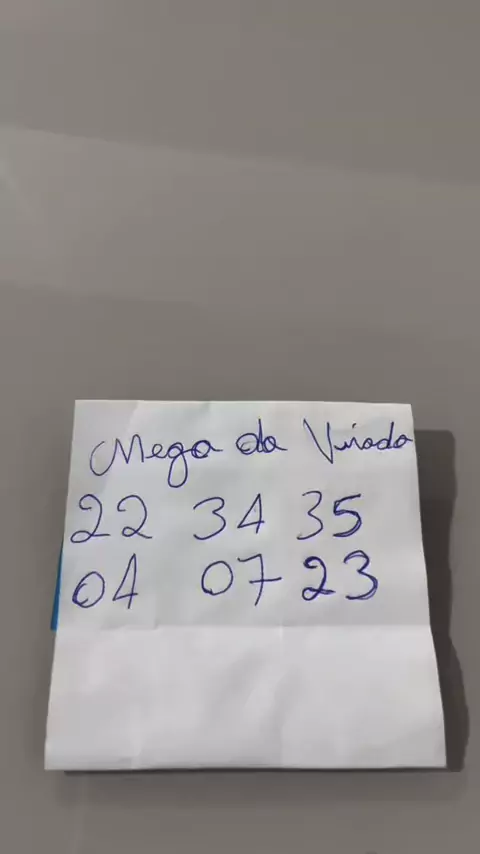 Mega da Virada
22 34 35
04 07 23